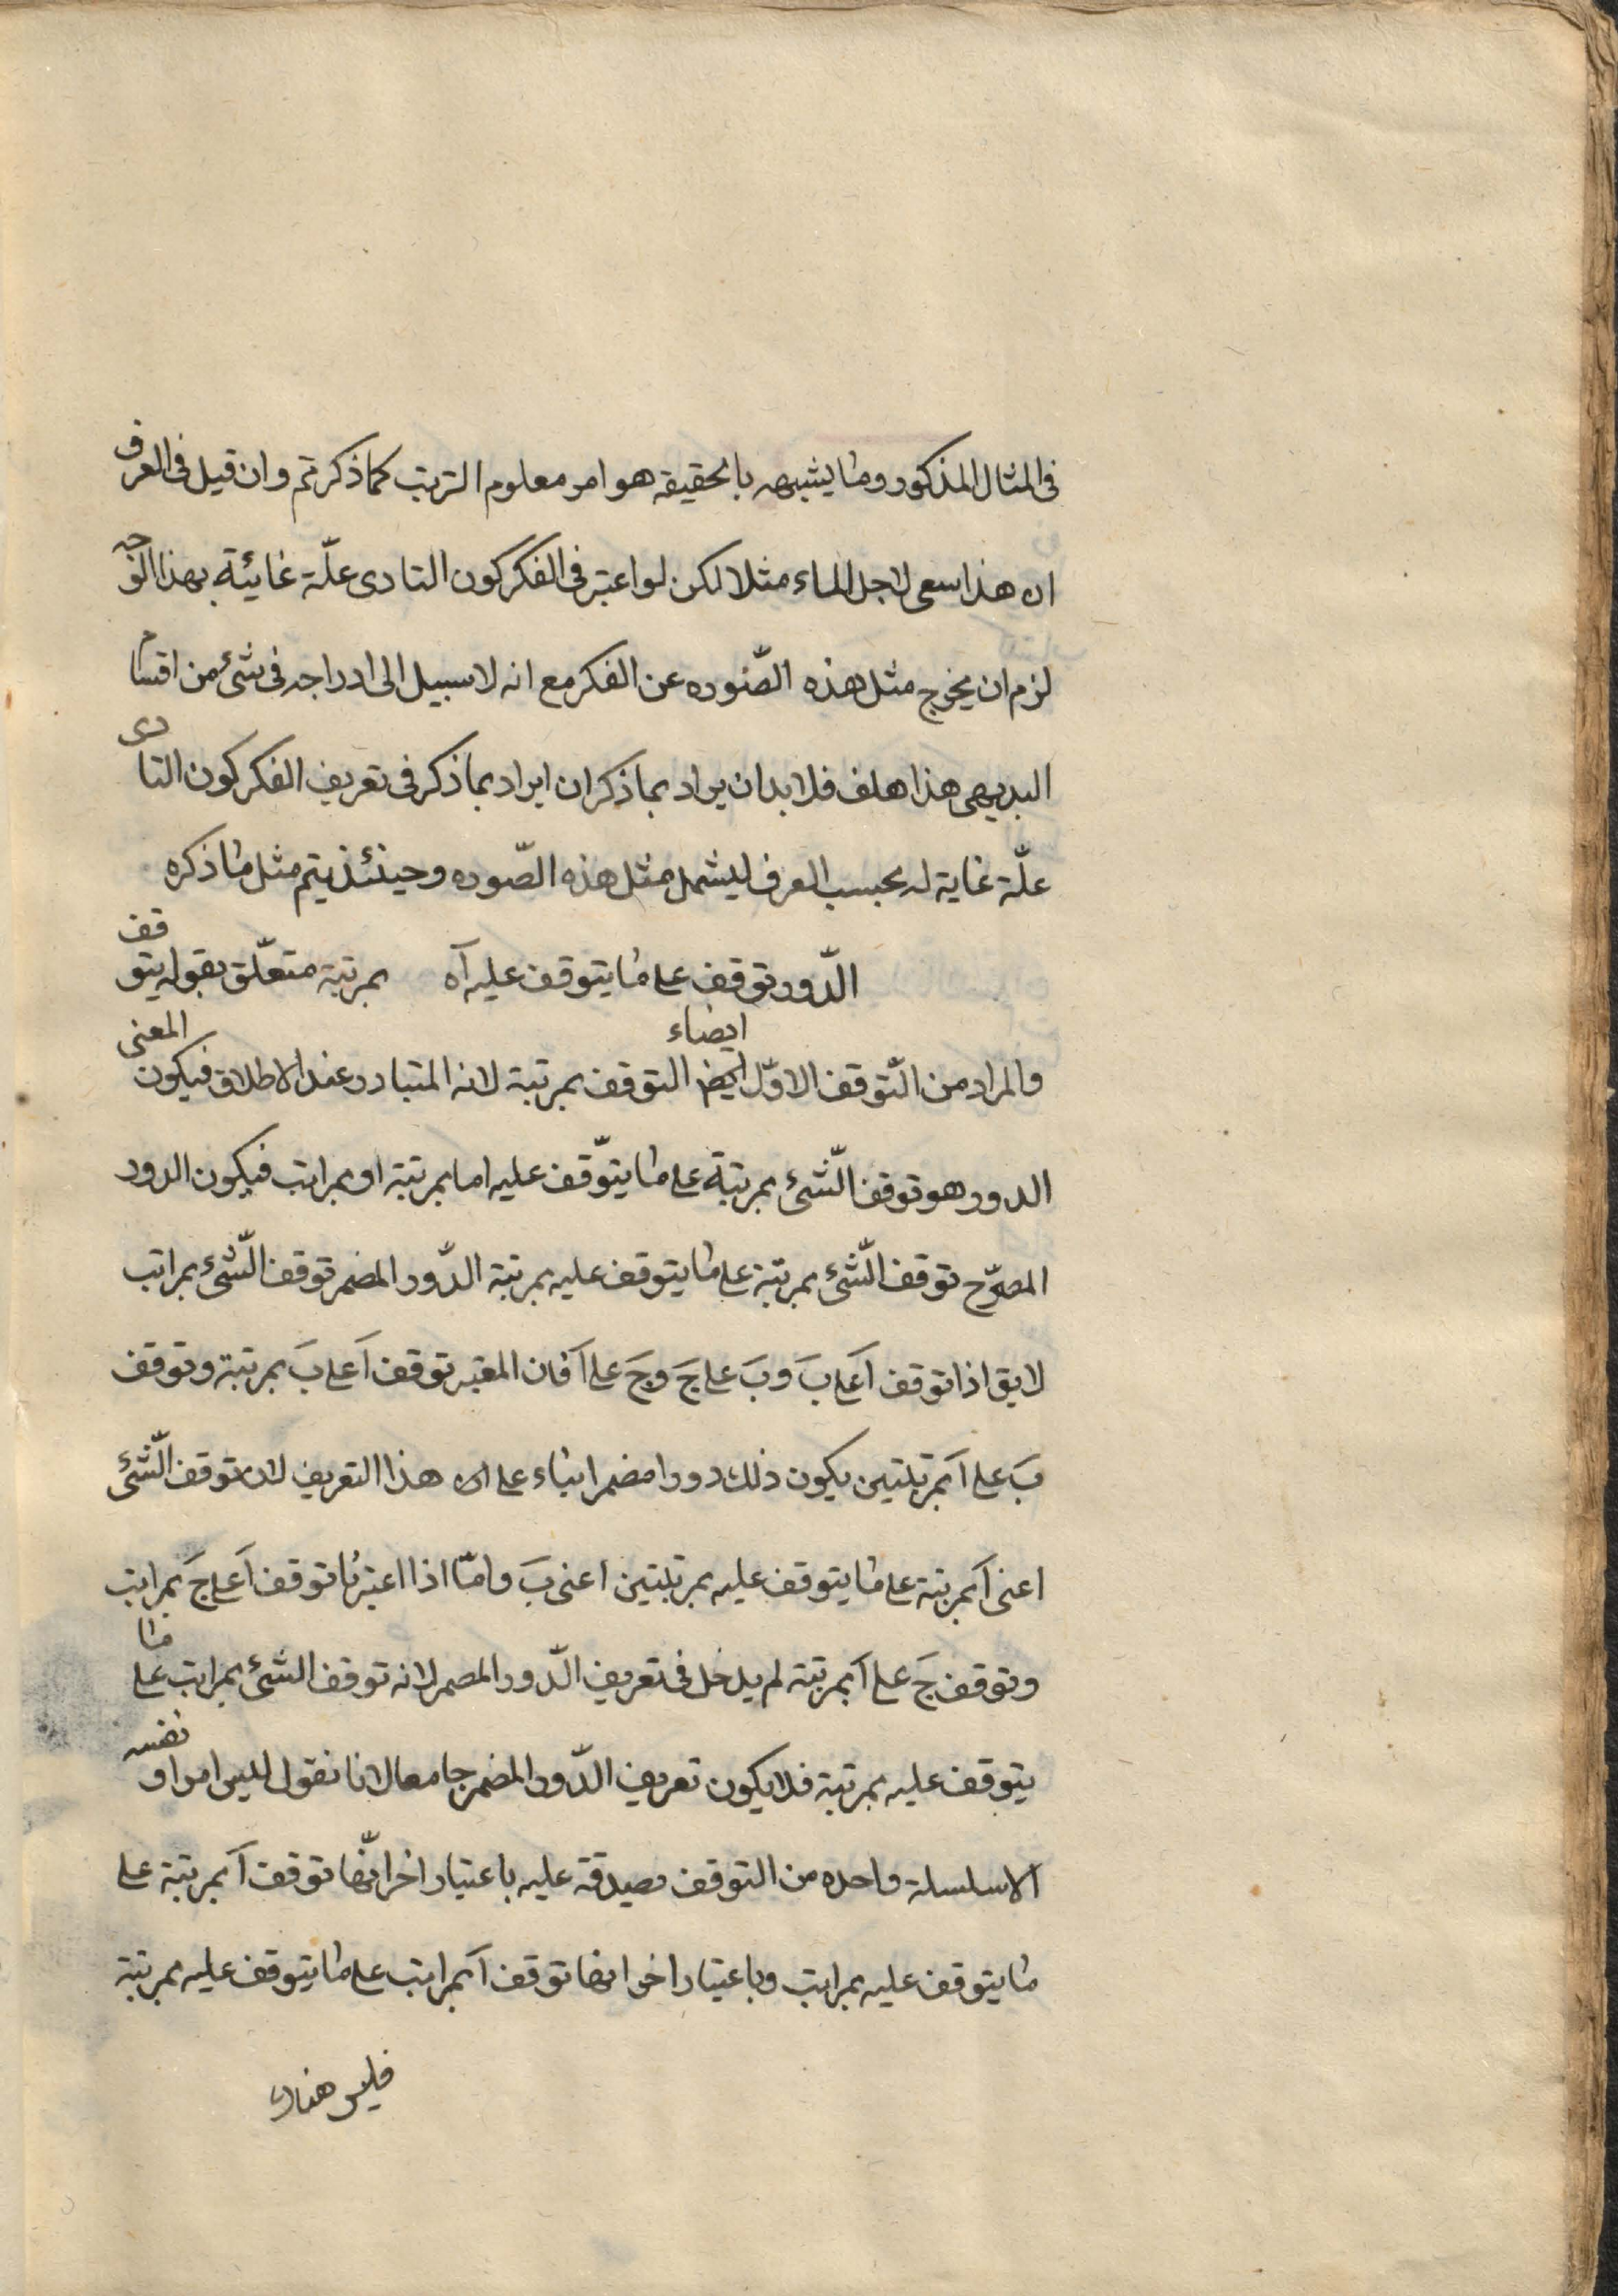 فى المثال المذكور وما يشبهه بالحقيقة هو امر معلوم الترتب كما ذكرتم وان قيل فى العرف
ان هذا سعى لاجل الماء مثلا لكن لو اعتبر فى الفكر كون التادى علّة غائية بهذا الوجه
لزم ان يخرج مثل هذه الصّوره عن الفكر مع انه لا سبيل الى ادراجه فى شئ من اقسام
البديهى هذا هلف فلا بد ان يراد بما ذكر ان ايراد بما ذكر فى تعريف الفكر كون التادى
علّة غاية له بحسب العرف ليشمل مثل هذه الصّوره وحينئذ يتم مثل ما ذكره
الدّور توقف على ما يتوقف عليه آه بمرتبة متعلّق بقوله يتوقف
والمراد من التّوقف الاوّل ايضا التوقف بمرتبة لانه المتبادر عند الاطلاق فيكون المعنى
الدور هو توقف الشّئ بمرتبة على ما يتوّقف عليه اما بمرتبة او بمراتب فيكون الدور
المصرّح توقف الشّئ بمرتبة على ما يتوقف عليه بمرتبة الدّور المضمر توقف الشّئ بمراتب
لايق اذا توقف آ على بَ وبَ على جَ وجَ على آ فان المعتبر توقف آ على بَ بمرتبة وتوقف
بَ على آ بمرتبتين يكون ذلك دورا مضمرا بناء على ان هذا التعريف لان توقف الشّئ
اعنى آ بمرتبة على ما يتوقف عليه بمرتبتين اعنى بَ وامّا اذا اعتبرنا توقف آ على جَ بمراتب
وتوقف جَ على آ بمرتبة لم يدخل فى تعريف الدّور المضمر لانه توقف الشئ بمراتب على ما
يتوقف عليه بمرتبة فلا يكون تعريف الدّور المضمر جامعا لانا نقول ليس امرا و نفسه
الا سلسلة واحده من التوقف صدقة عليه باعتبار اخر انّها توقف آ بمرتبة على
ما يتوقف عليه بمراتب وباعتبار اخر انها توقف آ بمراتب على ما يتوقف عليه بمرتبة
فليس هناك